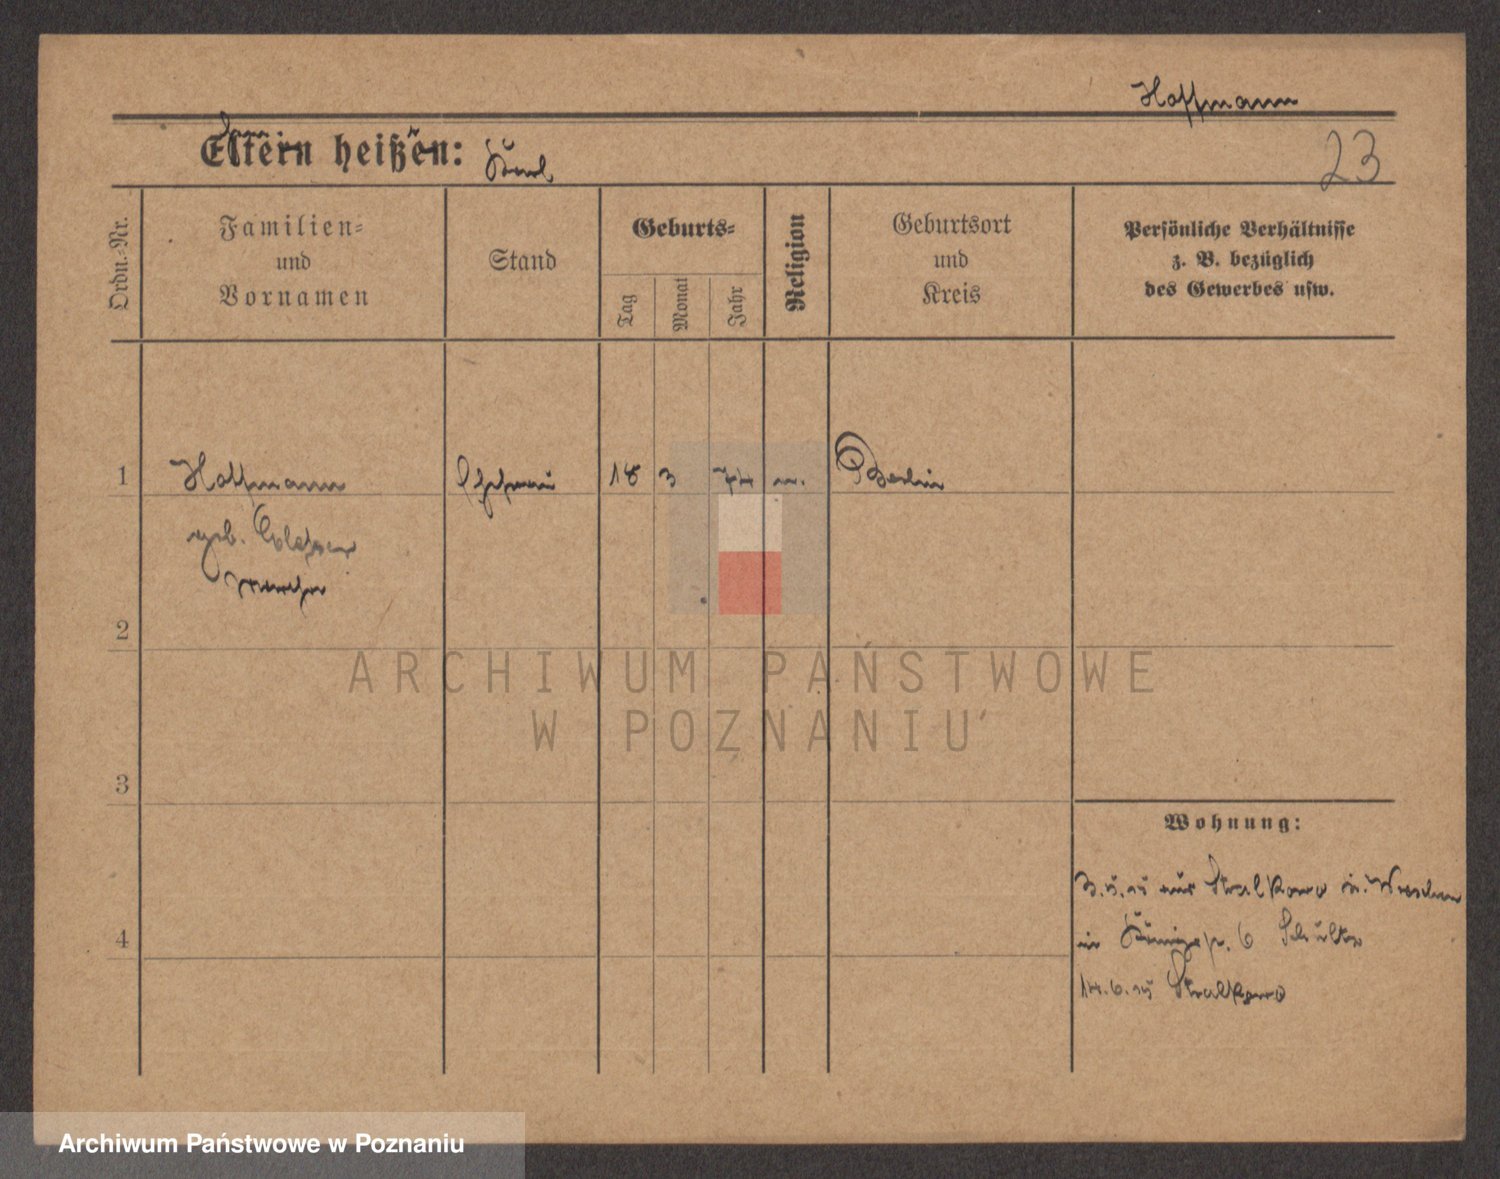 Hoffmann
Eltern heißen: Karl
23
Ordn.-Nr.
Familien-
und
Vornamen
Stand
Geburts-
Tag
Monat
Jahr
Religion
Geburtsort
und
Kreis
Persönliche Verhältnisse
z. B. bezüglich
des Gewerbes usw.
1
Hoffmann
Ehefrau
18
3
74
Berlin
geb.
2
3
4
Wohnung:
3.5.15 aus Stralkowo
in 6 Schultz
14.6.15 Stralkowo
ARCHIWUM PAŃSTWOWE
W POZNANIU
Archiwum Państwowe w Poznaniu